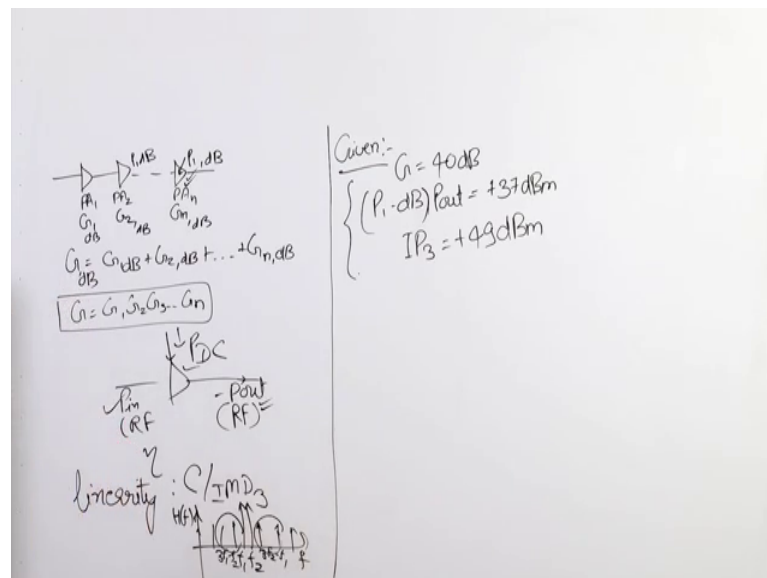 P1,dB P1,dB
PA1 PA2 PAn
G1,dB G2,dB Gn,dB
GdB = G1dB + G2,dB + ... + Gn,dB
G = G1 G2 G3... Gn
PDC
Pin (RF
- Pout (RF)
η
linearity : C/IMD3
H(f)
2f1-f2 f1 f2 2f2-f1 f
Given:-
G = 40dB
(P1-dB) Pout = +37dBm
IP3 = +49dBm